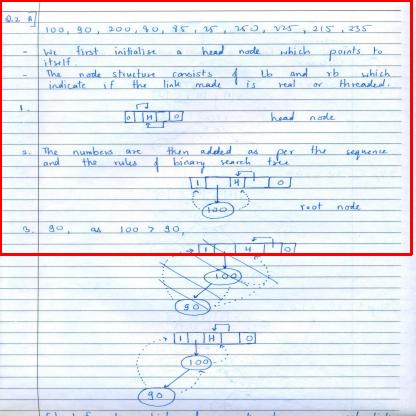 Q.2 A]
100, 90, 200, 80, 85, 25, 250, 225, 215, 235
- We first initialise a head node which points to
itself.
- The node structure consists of Lb and rb which
indicate if the link made is real or threaded.
1.
0 H 0
head node
2. The numbers are then added as per the sequence
and the rules of binary search tree
1 H 0
100
root node
3. 90, as 100 > 90,
1 H 0
100
90
1 H 0
100
90